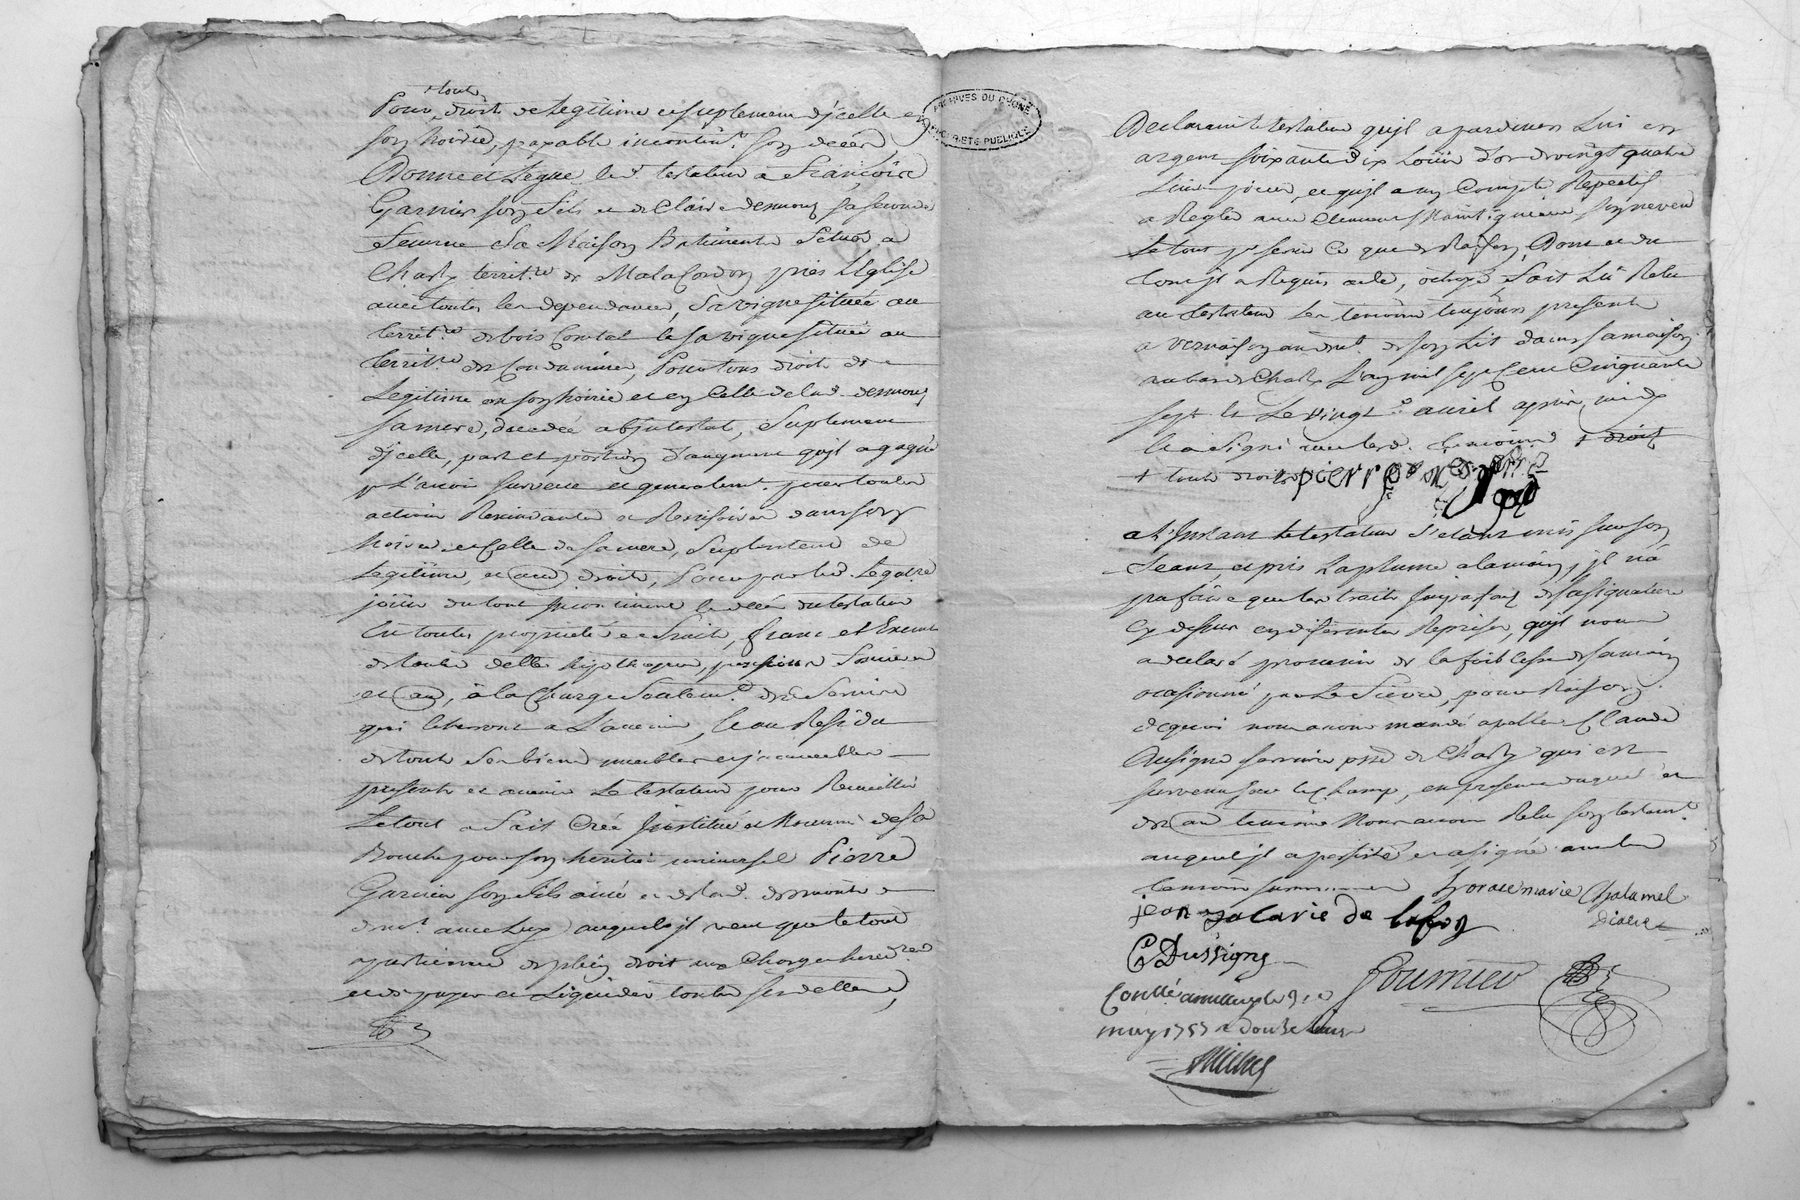 tout
Pour droits de Legitime et suplement d'jcelle en
son hoirie, payable incontint. son decés
Donne et Legue led. testateur a François
Garnier son fils et de Claire demous sa seconde
femme sa Maison Batiments scitués a
Charly territ.re de Malacordon près L'Eglise
avec toutes les dependances, sa vigne située au
territ.re de bois Comtal et sa vigne située au
territ.re des Condamines, Pour tous droits de
Legitime en son hoirie et en Celle de lad. demous
sa mere, decedée abjntestat, suplement
d'jcelle, part et portion d'augment qu'jl a gagné
p. L'avoir survecu et generalemt. pour toutes
actions Rescindantes et Rescisoires dans son
hoirie et Celle de sa mere, suplement de
Legitime, et au. droits, pour par led. Legataire
joüir du tout jncontinent le decés du testateur
En toutes proprieté et fruits, franc et Exempt
de toutes dettes hipotheques, pensions foncieres
et au., à la Charge seulemt. des servis
qui echeront a L'avenir, Et au Residu
de tous ses biens meubles et jmmeubles
presents et avenir Le testateur pour Recueillir
Le tout a fait Créé Jnstitué et Nommé de sa
Bouche pour son heritier universel Pierre
Garnier son fils ainé et de lad. demous
auquel jl veut que le tout
apartienne de plein droit aux Charges hered.res
et de payer et Liquider toutes ses dettes,
ARCHIVES DU RHÔNE
PROPRIÉTÉ PUBLIQUE
Declarant le testateur qu'jl a pardevers Lui en
argent soixante dix Loüis d'or de vingt quatre
Livres piece, et qu'jl a un Compte Respectif
a Regler avec Clement son neveu
Le tout p. servir Ce que de Raison, Dont et du
tout jl a Requis acte, octroyé fait Lû Relu
au testateur les temoins toujours presents
a vernaison au devt. de son Lit dans sa maison
au bas de Charly L'an mil sept Cent Cinquante
sept et Le vingt avril après midy
et a signé avec lesd. temoins + droits
+ touts droits pierre
a L'jnstant le testateur s'etant mis sur son
seant, et pris La plume a la main, jl n'a
pu faire que les traits de sa signature
Cy dessus en diferentes Reprises, qu'jl nous
a declaré provenir de la foiblesse de sa main
ocasionné par La fievre, pour Raison
de quoi nous avons mandé apeller Claude
Dusigne de Charly qui est
survenu sur le Champ, en presence duquel et
des au. temoins Nous avons Relu son testamt.
auquel jl a persisté et a signé avec les
temoins horace marie Chalamel
diacre
jean zacarie de lafon
C Dussigne
Fournier
Conllé a le
may 1757 R Douze Livres
Michel